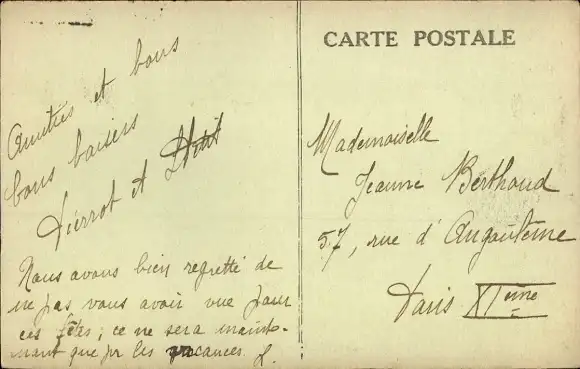 CARTE POSTALE
Amitiés et bons
bons baisers
Pierrot et
Nous avons bien regretté de
ne pas vous avoir vue pour
ces fêtes ; ce ne sera mainte-
nant que pr les vacances. L.
Mademoiselle
Jeanne Berthoud
57, rue d'Angoulême
Paris XIème